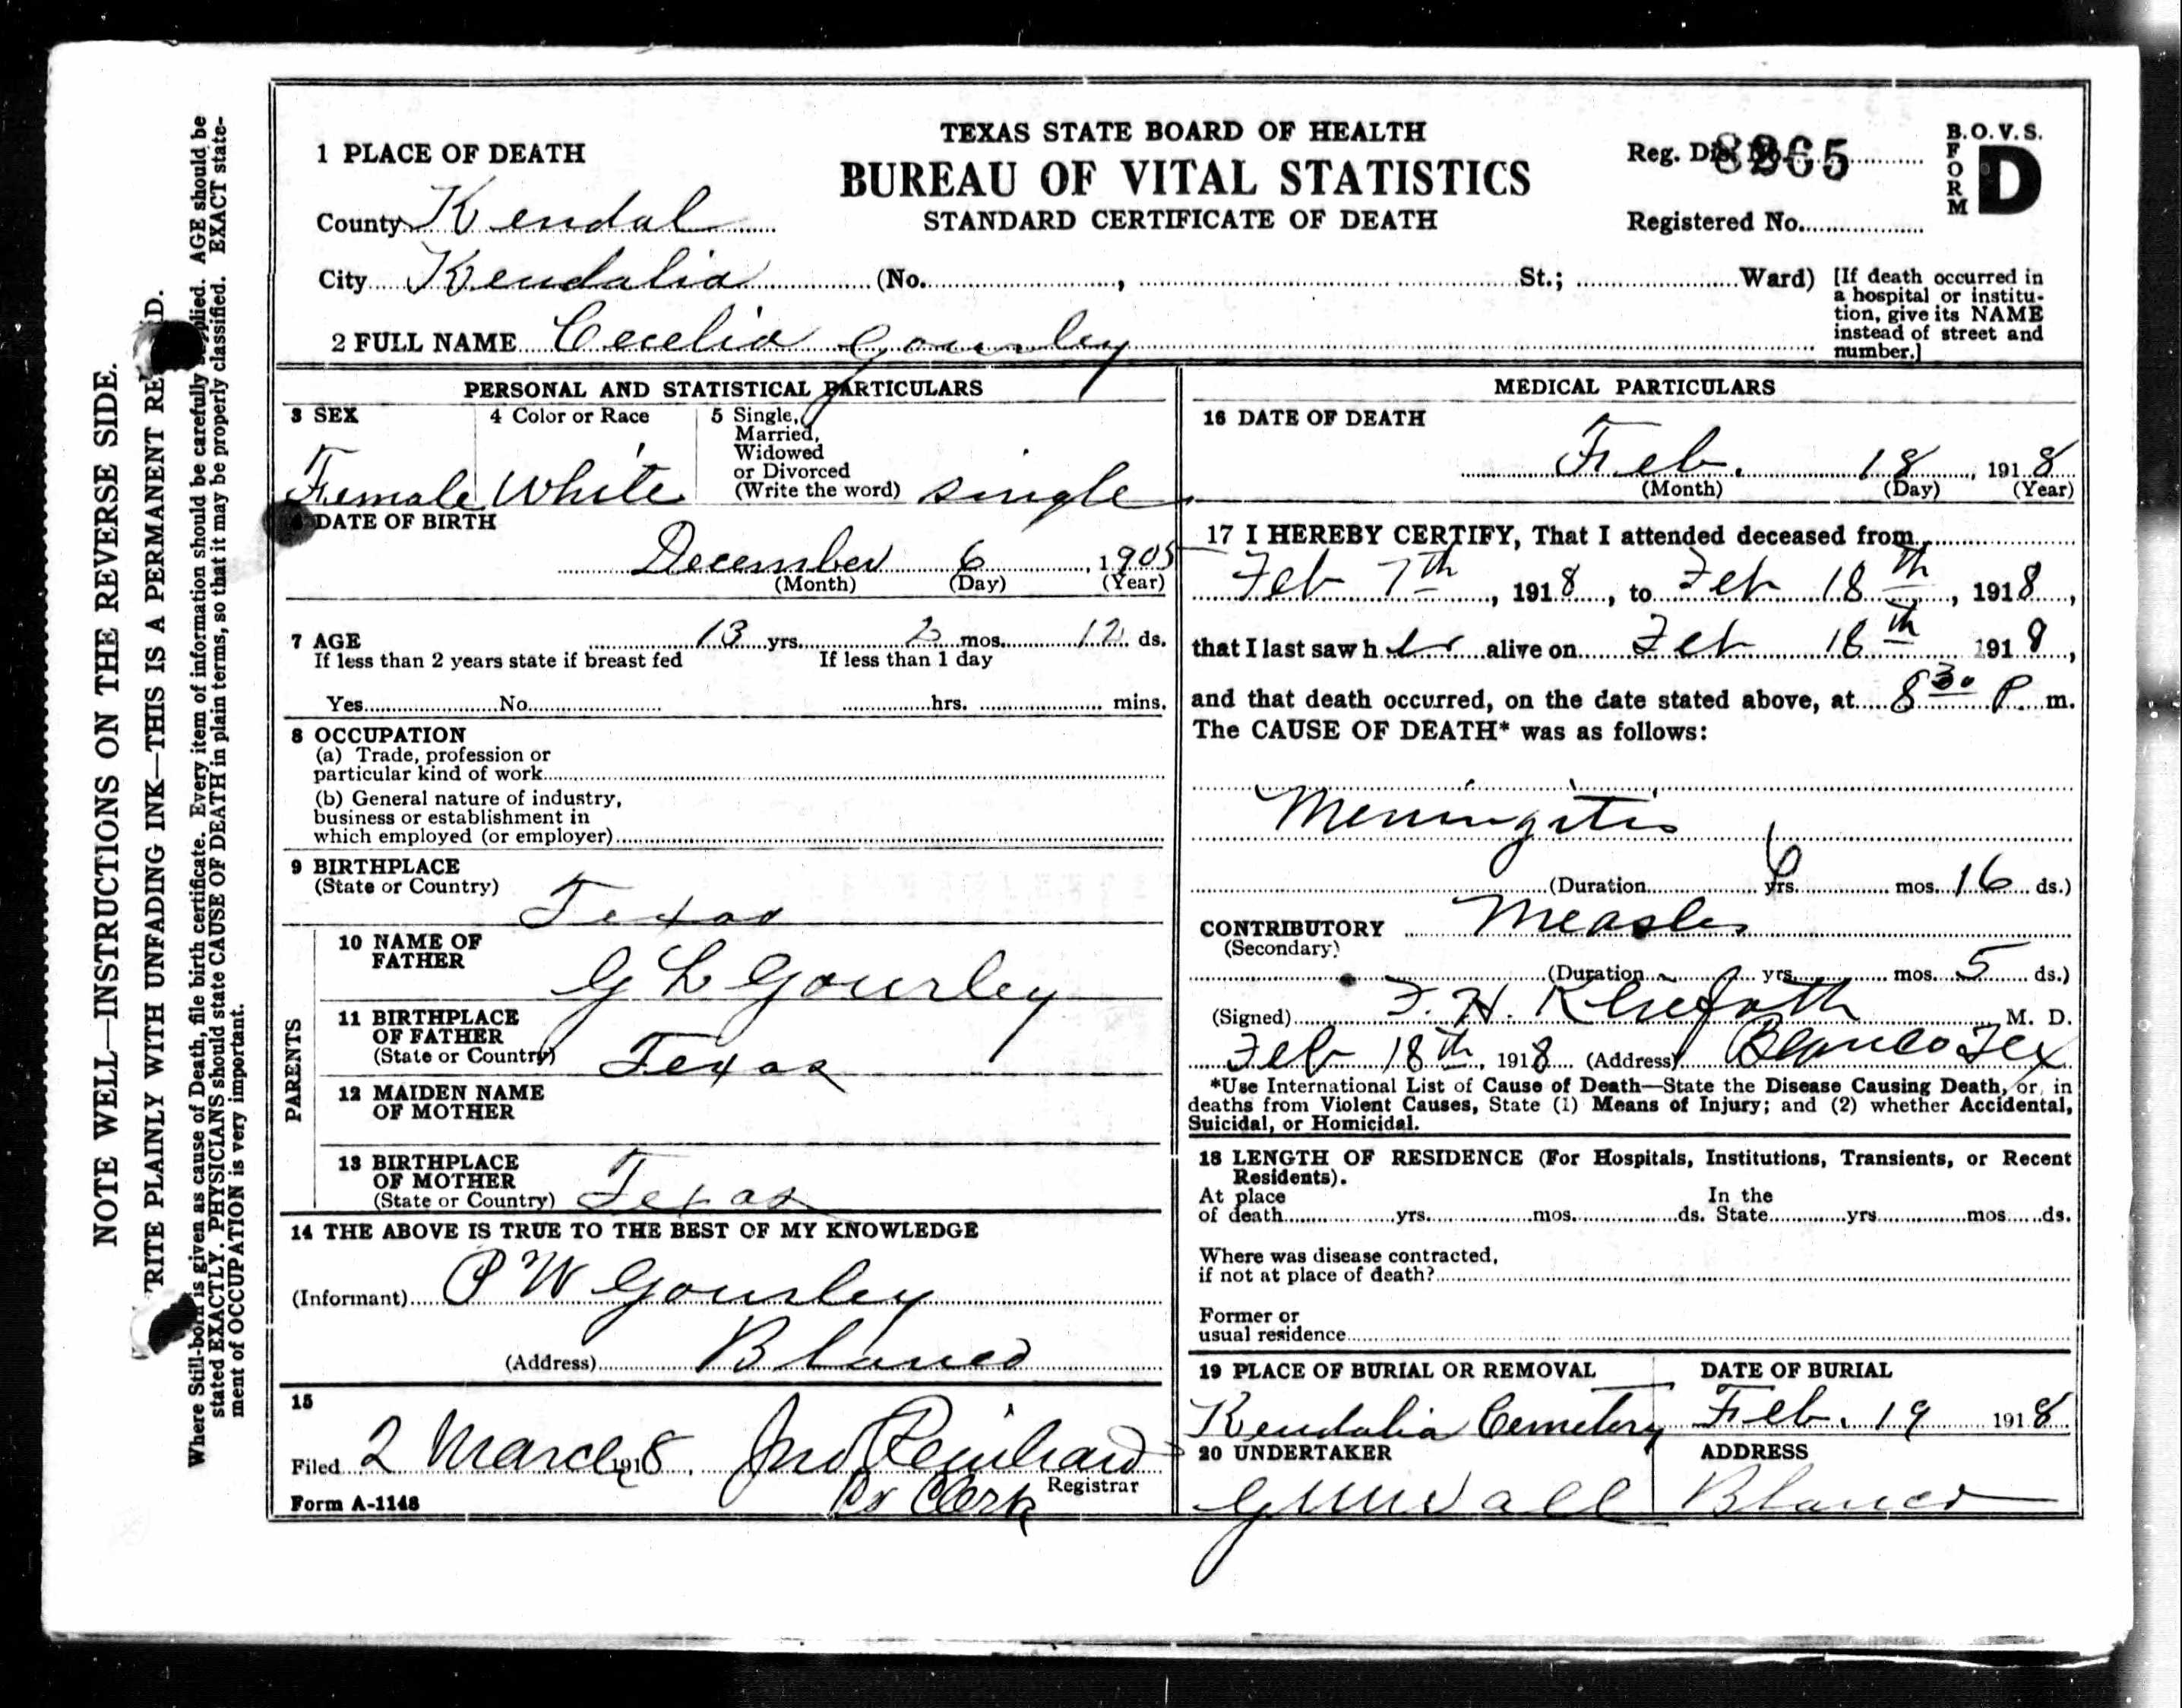 NOTE WELL—INSTRUCTIONS ON THE REVERSE SIDE.
RITE PLAINLY WITH UNFADING INK—THIS IS A PERMANENT RE D.
Where Still-born is given as cause of Death, file birth certificate. Every item of information should be carefully plied. AGE should be
stated EXACTLY. PHYSICIANS should state CAUSE OF DEATH in plain terms, so that it may be properly classified. EXACT state-
ment of OCCUPATION is very important.
TEXAS STATE BOARD OF HEALTH
BUREAU OF VITAL STATISTICS
STANDARD CERTIFICATE OF DEATH
Reg. Dis. No. 65
Registered No.
B.O.V.S.
FORM D
1 PLACE OF DEATH
County Kendal
City Kendalia (No. , St.; Ward)
[If death occurred in
a hospital or institu-
tion, give its NAME
instead of street and
number.]
2 FULL NAME Cecelia Gourley
PERSONAL AND STATISTICAL PARTICULARS
3 SEX
Female
4 Color or Race
White
5 Single,
Married,
Widowed
or Divorced
(Write the word) single
DATE OF BIRTH
December 6, 1905
(Month) (Day) (Year)
7 AGE 13 yrs. 2 mos. 12 ds.
If less than 2 years state if breast fed If less than 1 day
Yes No hrs. mins.
8 OCCUPATION
(a) Trade, profession or
particular kind of work
(b) General nature of industry,
business or establishment in
which employed (or employer)
9 BIRTHPLACE
(State or Country)
Texas
PARENTS
10 NAME OF
FATHER
G L Gourley
11 BIRTHPLACE
OF FATHER
(State or Country) Texas
12 MAIDEN NAME
OF MOTHER
13 BIRTHPLACE
OF MOTHER
(State or Country) Texas
14 THE ABOVE IS TRUE TO THE BEST OF MY KNOWLEDGE
(Informant) P W Gourley
(Address) Blanco
15
Filed 2 March 1918, Jno Reinhard
Registrar
Co Clerk
Form A-1148
MEDICAL PARTICULARS
16 DATE OF DEATH
Feb. 18, 1918
(Month) (Day) (Year)
17 I HEREBY CERTIFY, That I attended deceased from
Feb 7th, 1918, to Feb 18th, 1918,
that I last saw her alive on Feb 18th 1918,
and that death occurred, on the date stated above, at 8 30 P m.
The CAUSE OF DEATH* was as follows:
Meningitis
(Duration yrs. mos. 16 ds.)
CONTRIBUTORY Measles
(Secondary)
(Duration yrs. mos. 5 ds.)
(Signed) M. D.
Feb 18th, 1918 (Address) Blanco Tex
*Use International List of Cause of Death—State the Disease Causing Death, or, in
deaths from Violent Causes, State (1) Means of Injury; and (2) whether Accidental,
Suicidal, or Homicidal.
18 LENGTH OF RESIDENCE (For Hospitals, Institutions, Transients, or Recent
Residents).
At place In the
of death yrs. mos. ds. State yrs. mos ds.
Where was disease contracted,
if not at place of death?
Former or
usual residence
19 PLACE OF BURIAL OR REMOVAL
Kendalia Cemetery
DATE OF BURIAL
Feb. 19 1918
20 UNDERTAKER
ADDRESS
Blanco